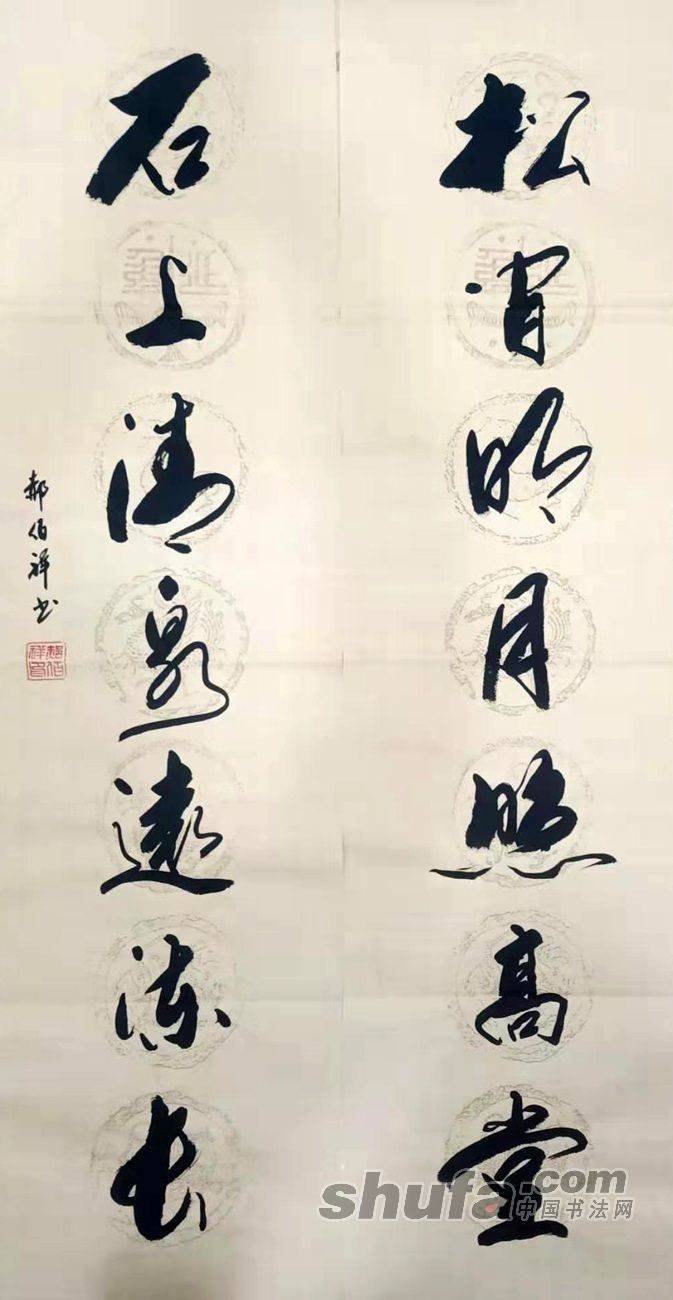 松间明月照高堂
石上清泉遠流长
郝伯祥书
shufa.com
中国书法网